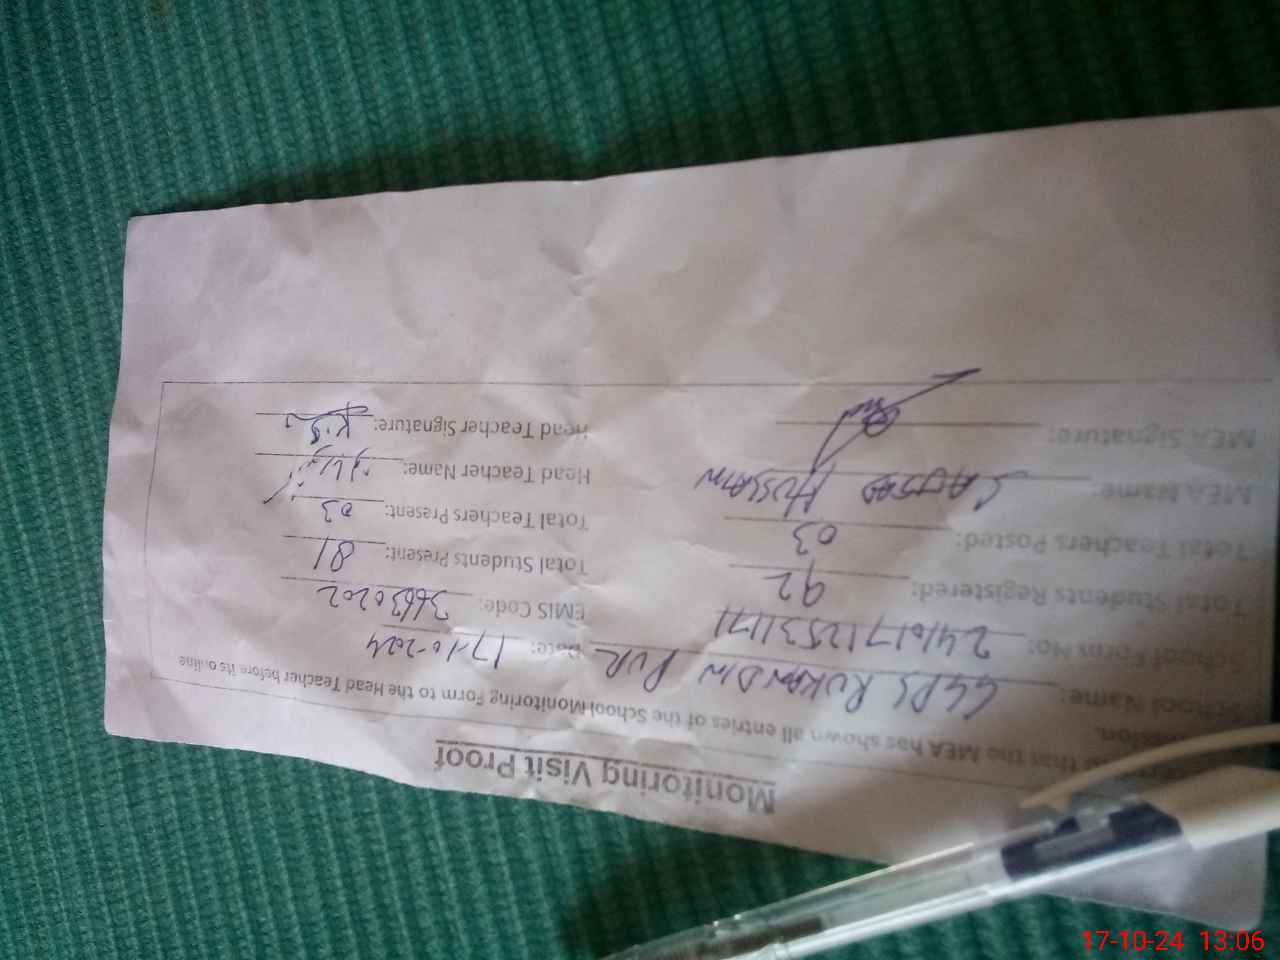 Monitoring Visit Proof
that the MEA has shown all entries of the School Monitoring Form to the Head Teacher before its online
School Name: GGPS RUKANDIN PUR Date: 17-10-2024
School Form No: 24101712531171 EMIS Code: 36630202
Total Students Registered: 92 Total Students Present: 81
Total Teachers Posted: 03 Total Teachers Present: 03
MEA Name: HUSSAIN Head Teacher Name:
MEA Signature: Head Teacher Signature:
17-10-24 13:06